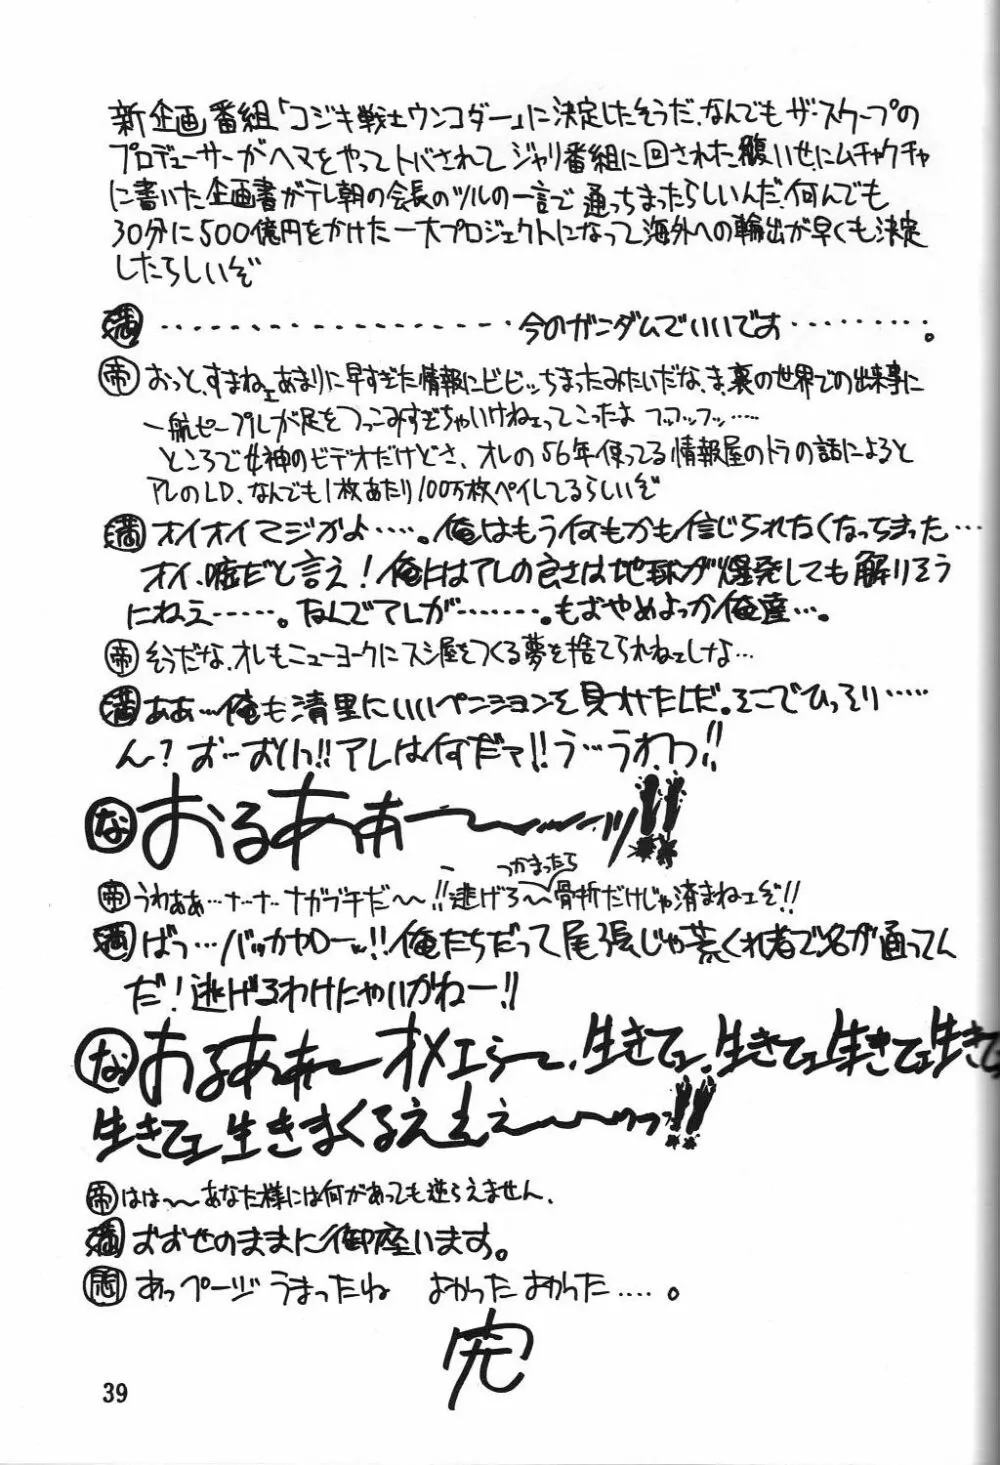 新企画番組「コジキ戦士ウンコダー」に決定したそうだ、なんでもザ・スクープの
プロデューサーがヘマをやってトバされてジャリ番組に回された腹いせにムチャクチャ
に書いた企画書がテレ朝の会長のツルの一言で通っちまったらしいんだ、何んでも
30分に500億円をかけた一大プロジェクトになって海外への輸出が早くも決定
したらしいぞ
満 ・・・・・・・・・・・・・・・・・・今のガンダムでいいです・・・・・・・・・。
帝 おっと、すまねェあまりに早すぎた情報にビビッちまったみたいだな、ま、裏の世界での出来事に
一般ピープルが足をつっこみすぎちゃいけねェってこったよ フッフッフッ……
ところで女神のビデオだけどさ、オレの56年使ってる情報屋のトラの話によると
アレのLD、なんでも1枚あたり100万枚ペイしてるらしいぞ
満 オイオイマジかよ……。俺はもう何もかも信じられなくなっちまった…
オイ、嘘だと言え！俺にはアレの良さは地球が爆発しても解りそう
にねえ……。なんでアレが…….。もおやめよっか俺達…。
帝 そうだな、オレもニューヨークにスシ屋をつくる夢を捨てられねェしな…
満 ああ…俺も清里にいいペンションを見つけたしだ。そこでひっそり……
ん？お…おいっ!!アレは何だァ!!う…うわっ!!
な おるあぁ〜〜〜ッ!!
帝 うわぁぁ…ナ…ナ… ナガブチだ〜〜!!逃げろ〜〜つかまったら骨折だけじゃ済まねェぞ!!
満 ばっ…バッカヤローッ!!俺たちだって尾張じゃ荒くれ者で名が通ってん
だ！逃げるわけにゃいかねー!!
な おるあぁ〜オメェら〜、生きてェ、生きてェ生きてェ生きて
生きてェ生きまくるえぇぇ〜〜〜ッっ!!
帝 はは〜〜あなた様には何があっても逆らえません、
満 おおせのままに御座います。
あっページうまったね よかったよかった…..。
完
39